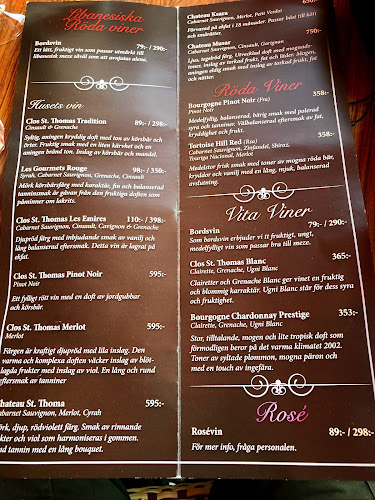 Libanesiska
Röda viner
Bordsvin 79:- / 290:-
Ett lätt, fruktigt vin som passar utmärkt till
libanesisk meze såväl som att avnjutas alena.
Husets vin
Clos St. Thomas Tradition 89:- / 298:-
Cinsault & Grenache
Saftig, aningen kryddig doft med ton av körsbär och
örter. Fruktig smak med en liten körhet och en
aningen bränd ton. Inslag av körsbär och mandel.
Les Gourmets Rouge 98:- / 350:-
Syrah, Cabernet Sauvignon, Grenache, Cinsault
Mörk körsbärsfärg med karaktär, fin och balanserad
tanninsmak är gåvan från den fruktiga doften som
påminner om lakrits.
Clos St. Thomas Les Emires 110:-/ 398:-
Cabernet Sauvignon, Cinsault, Cavignon & Grenache
Djupröd färg med inbjudande smak av vanilj och
lång balanserad eftersmak. Detta vin är lagrat på
ekfat.
Clos St. Thomas Pinot Noir 595:-
Pinot Noir
Ett fylligt rött vin med en doft av jordgubbar
och körsbär.
Clos St. Thomas Merlot 595:-
Merlot
Färgen är kraftigt djupröd med lila inslag. Den
varma och komplexa doften väcker inslag av blöt-
lagda frukter med inslag av viol. En lång och rund
eftersmak av tanniner
Chateau St. Thoma 595:-
Cabernet Sauvignon, Merlot, Cyrah
Mörk, djup, rödviolett färg. Smak av rinnande
frukter och viol som harmoniseras i gommen.
Rund tannin med en lång bouquet.
650:-
Chateau Ksara
Cabernet Sauvignon, Merlot, Petit Verdot
Förvarad på ekfat i 18 månader. Passar bäst till kött
och smårätter.
Chateau Musar 750:-
Cabernet Sauvignon, Cinsault, Carignan
Ljus, tegelröd färg. Utvecklad doft med mognads-
toner. Inslag av torkad frukt, fat och läder. Någon,
aningen eldig smak med inslag av torkad frukt, fat
och tobak.
Röda Viner
Bourgogne Pinot Noir (Fra) 358:-
Pinot Noir
Medelfyllig, balanserad, bärig smak med polerad
syra och tanniner. Välbalanserad eftersmak av fat,
kryddighet och frukt.
Tortoise Hill Red (Rsa) 358:-
Cabernet Sauvignon, Zinfandel, Shiraz,
Touriga Nacional, Merlot
Medelstor frisk smak med toner av mogna röda bär,
kryddor och vanilj med en lång, mjuk, balanserad
avslutning.
Vita Viner
Bordsvin 79:- / 290:-
Som bordsvin erbjuder vi ett fruktigt, ungt,
medelfylligt vin som passar bra till meze.
Clos St. Thomas Blanc 365:-
Clairette, Grenache, Ugni Blanc
Clairetter och Grenache Blanc ger vinet en fruktig
och blommig karaktär. Ugni Blanc står för dess syra
och fruktighet.
Bourgogne Chardonnay Prestige 353:-
Clairette, Grenache, Ugni Blanc
Stor, tilltalande, mogen och lite tropisk doft som
förmodligen beror på det varma klimatet 2002.
Toner av syltade plommon, mogna päron och
med en touch av ingefära.
Rosé
Rosévin 89:- / 298:-
För mer info, fråga personalen.